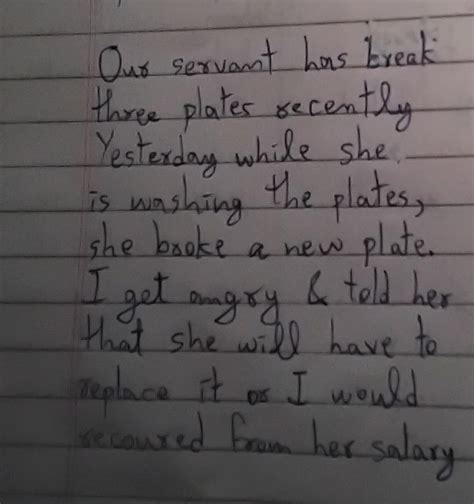 Our servant has break
three plates recently
Yesterday while she
is washing the plates,
she broke a new plate.
I get angry & told her
that she will have to
replace it or I would
recoured from her salary